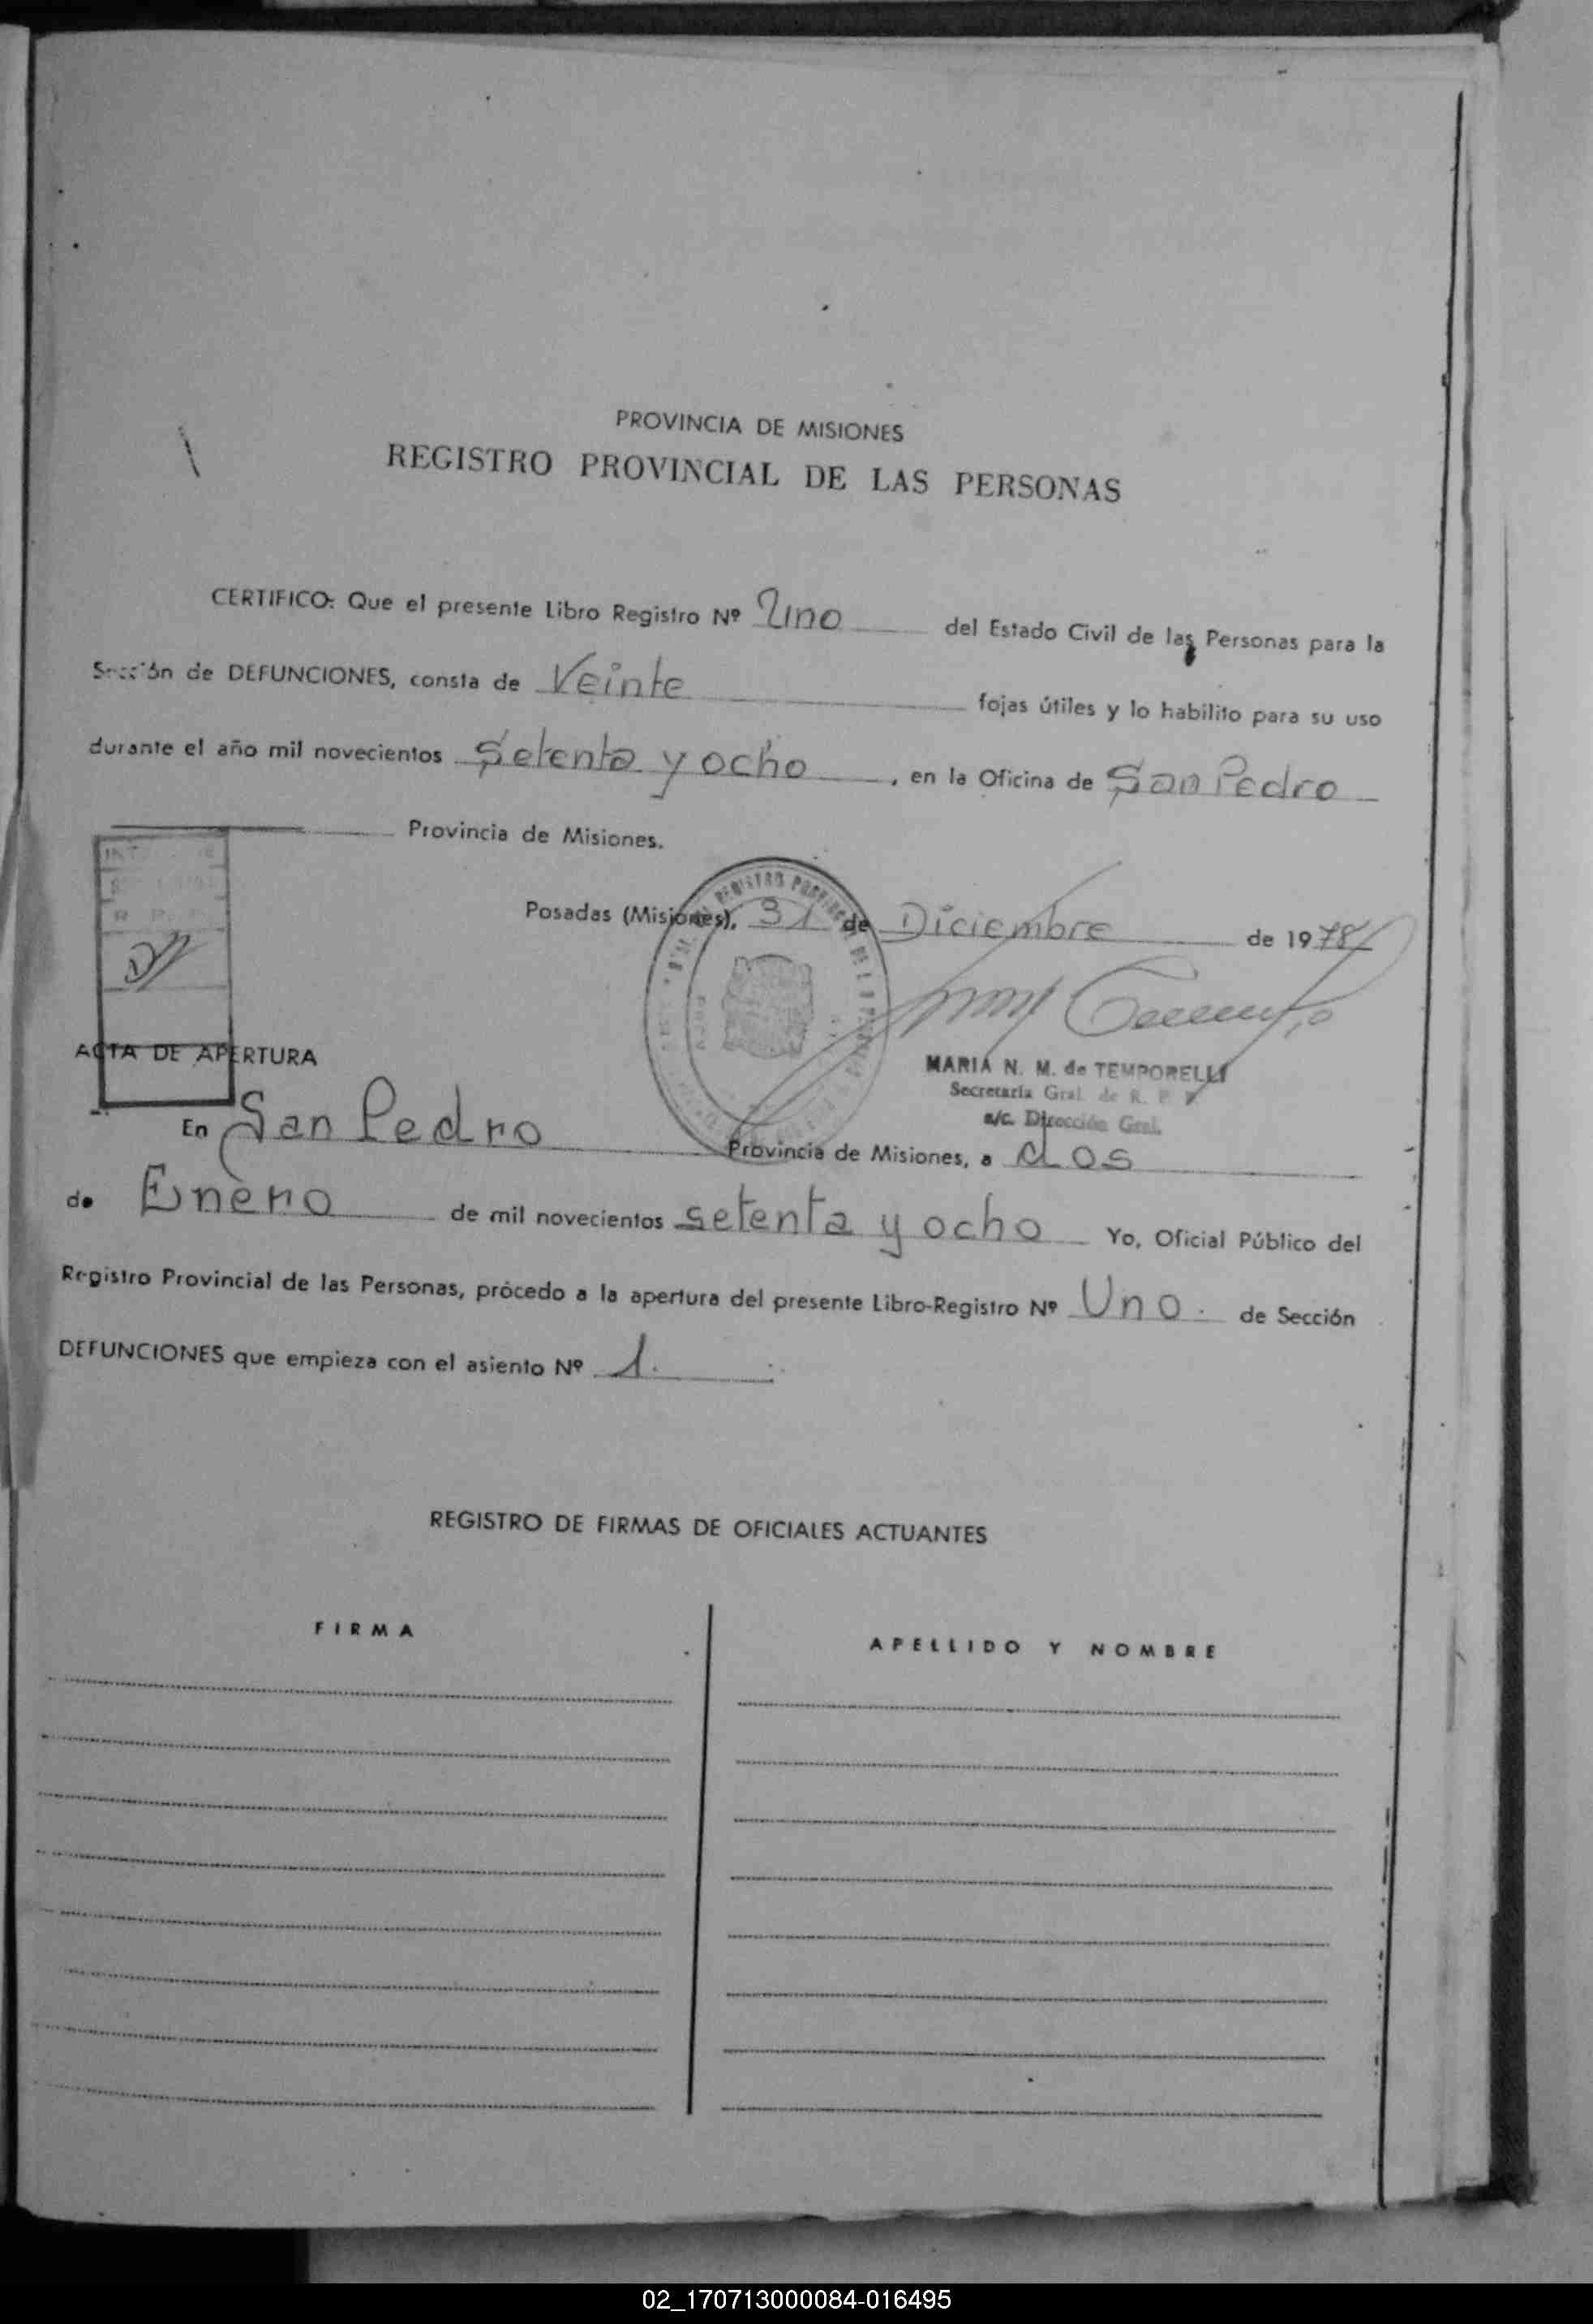 PROVINCIA DE MISIONES
REGISTRO PROVINCIAL DE LAS PERSONAS
CERTIFICO: Que el presente Libro Registro Nº Uno del Estado Civil de las Personas para la
Sección de DEFUNCIONES, consta de Veinte fojas útiles y lo habilito para su uso
durante el año mil novecientos Setenta y ocho, en la Oficina de San Pedro
Provincia de Misiones.
Posadas (Misiones), 31 de Diciembre de 1978
MARIA N. M. de TEMPORELLI
Secretaria Gral. de R. P. P.
a/c. Dirección Gral.
ACTA DE APERTURA
En San Pedro Provincia de Misiones, a dos
de Enero de mil novecientos setenta y ocho Yo, Oficial Público del
Registro Provincial de las Personas, prócedo a la apertura del presente Libro-Registro Nº Uno. de Sección
DEFUNCIONES que empieza con el asiento Nº 1.
REGISTRO DE FIRMAS DE OFICIALES ACTUANTES
FIRMA
APELLIDO Y NOMBRE
02_170713000084-016495